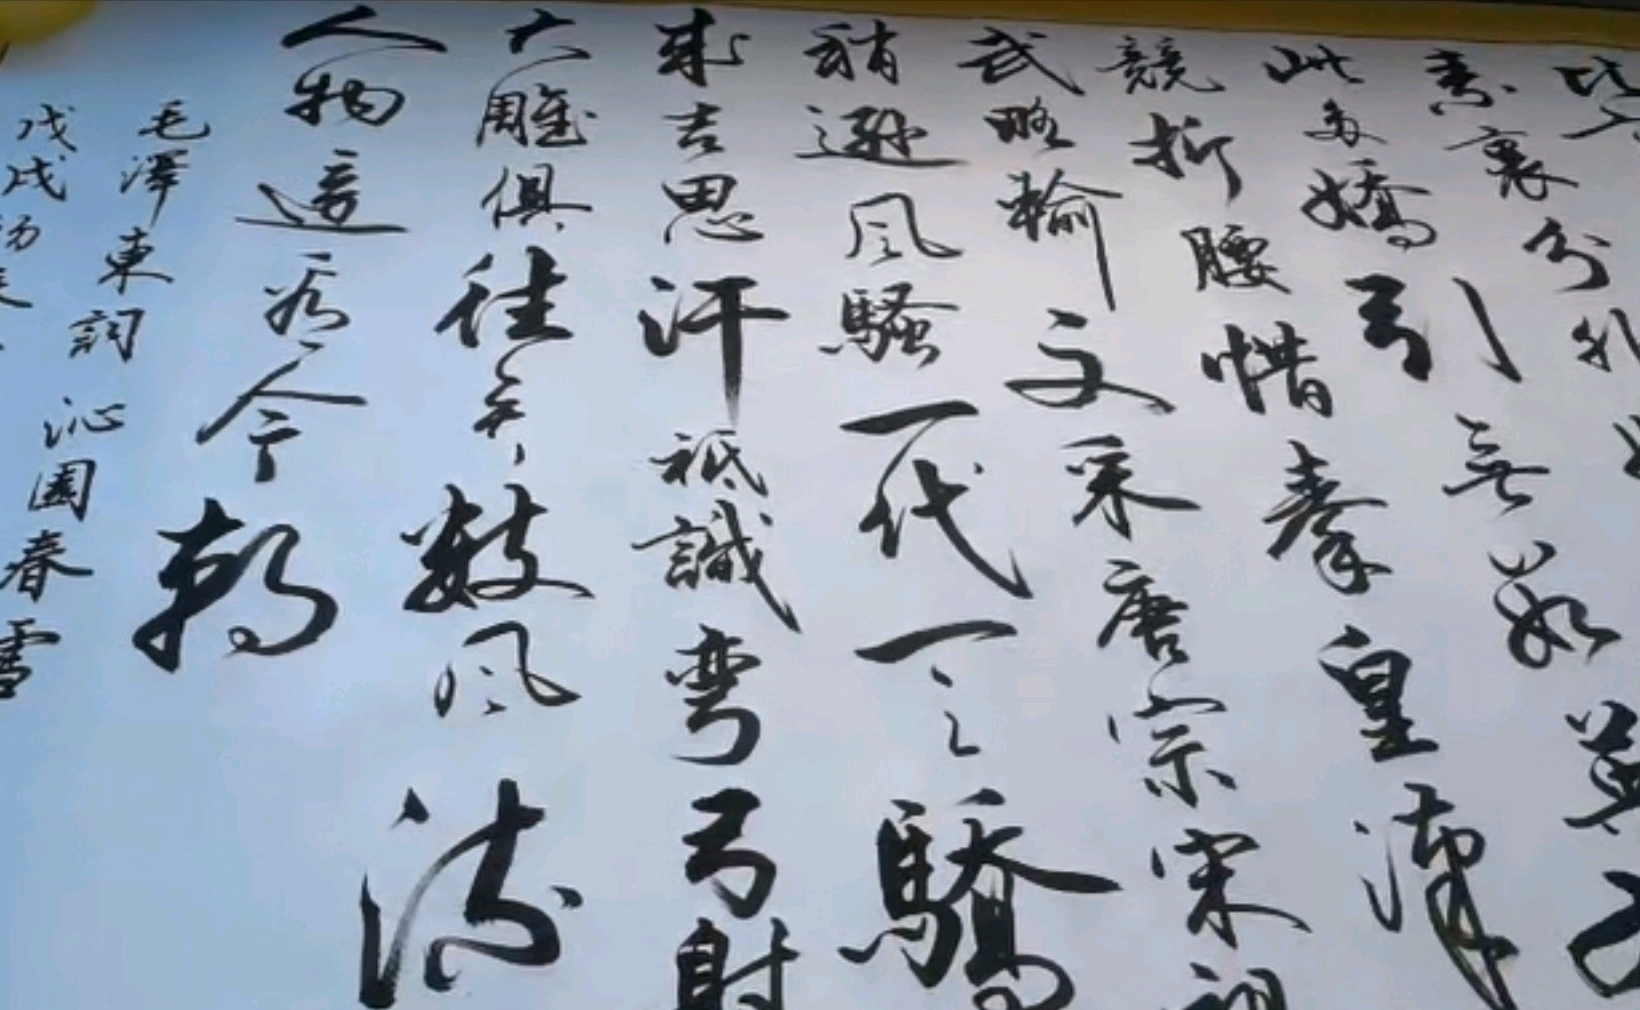 素裹分外
此多嬌引無數英
競折腰惜秦皇漢
武略輸文采唐宗宋祖
稍遜風騷一代天驕
成吉思汗祇識彎弓射
大雕俱往矣數風流
人物還看今朝
毛澤東詞沁園春雪
戊戌